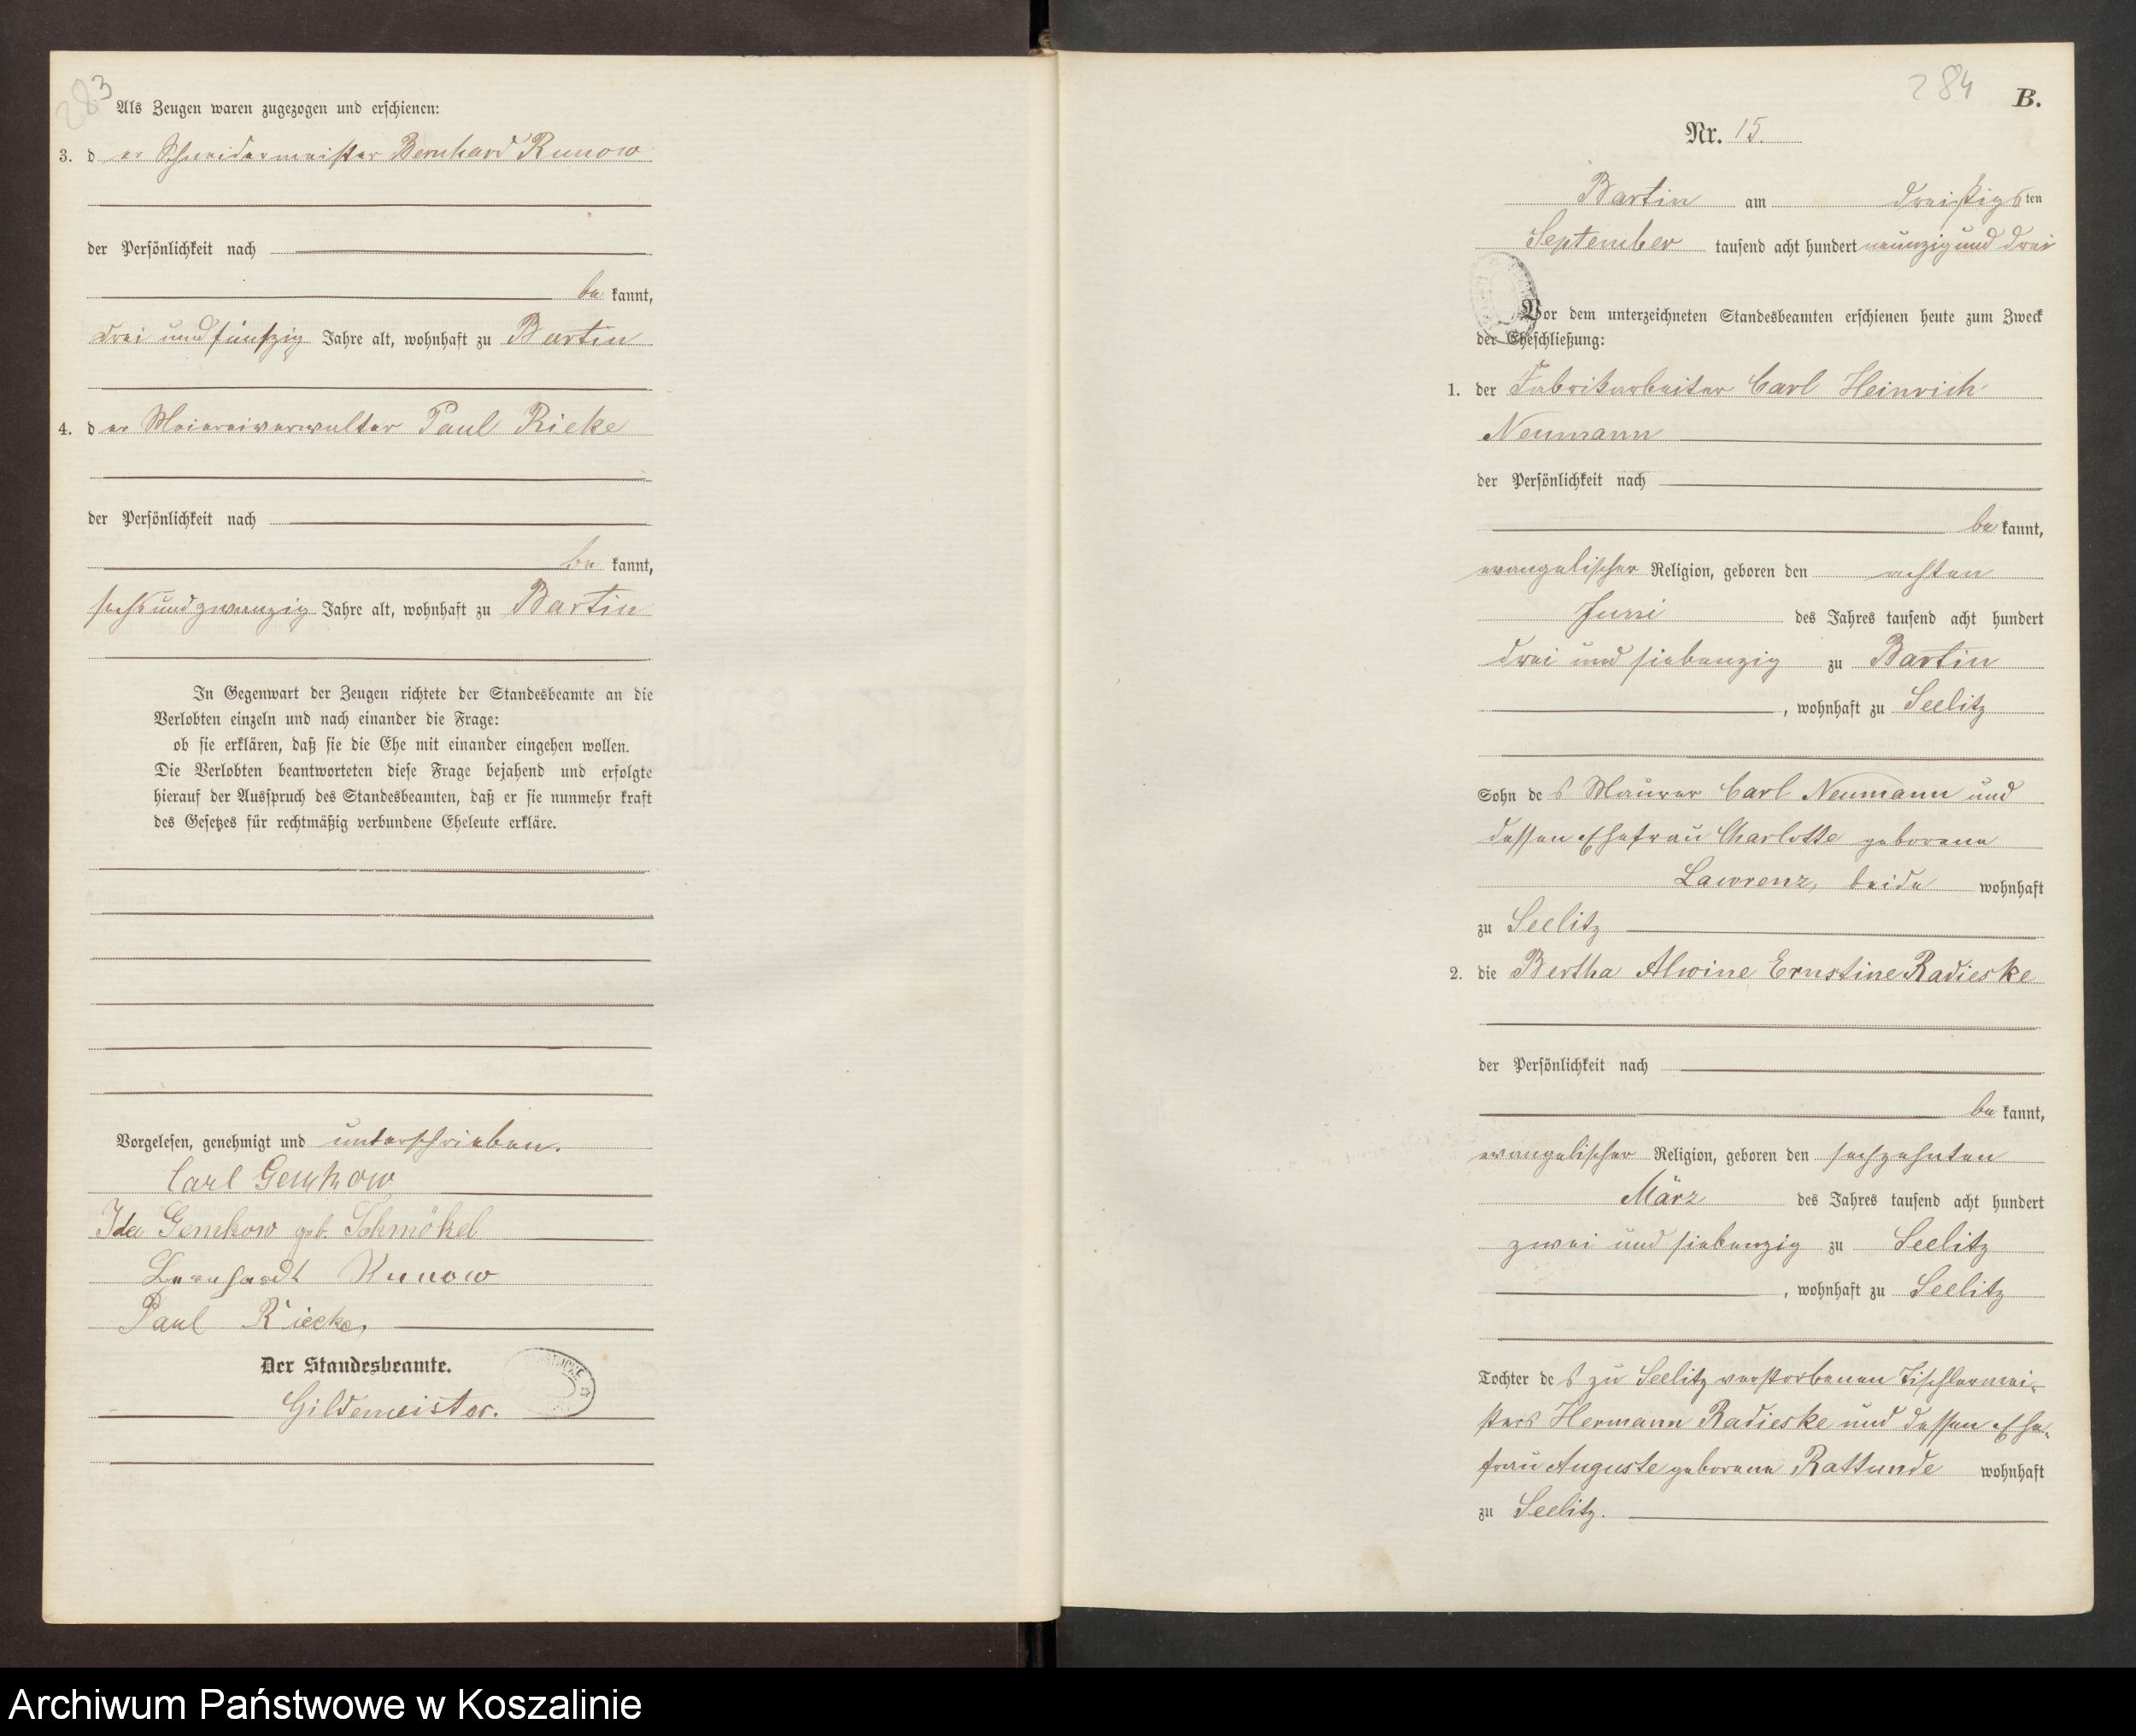 283
Als Zeugen waren zugezogen und erschienen:
3. der Schneidermeister Bernhard Kunow
der Persönlichkeit nach
bekannt,
drei und fünfzig Jahre alt, wohnhaft zu Bartin
4. der Meiereiverwalter Paul Rieke
der Persönlichkeit nach
bekannt,
sechs und zwanzig Jahre alt, wohnhaft zu Bartin
In Gegenwart der Zeugen richtete der Standesbeamte an die
Verlobten einzeln und nach einander die Frage:
ob sie erklären, daß sie die Ehe mit einander eingehen wollen.
Die Verlobten beantworteten diese Frage bejahend und erfolgte
hierauf der Ausspruch des Standesbeamten, daß er sie nunmehr kraft
des Gesetzes für rechtmäßig verbundene Eheleute erkläre.
Vorgelesen, genehmigt und unterschrieben.
Carl Gemkow
Ida Gemkow geb. Schmökel
Bernhardt Kunow
Paul Riecke,
Der Standesbeamte.
Gildemeister.
284
B.
Nr. 15.
Bartin am dreißigsten
September tausend acht hundert neunzig und drei
Vor dem unterzeichneten Standesbeamten erschienen heute zum Zweck
der Eheschließung:
1. der Fabrikarbeiter Carl Heinrich
Neumann
der Persönlichkeit nach
bekannt,
evangelischer Religion, geboren den achten
Juni des Jahres tausend acht hundert
drei und siebenzig zu Bartin
, wohnhaft zu Seelitz
Sohn des Maurer Carl Neumann und
dessen Ehefrau Charlotte geborene
Lawrenz, beide wohnhaft
zu Seelitz
2. die Bertha Alwine Ernstine Radieske
der Persönlichkeit nach
bekannt,
evangelischer Religion, geboren den sechzehnten
März des Jahres tausend acht hundert
zwei und siebenzig zu Seelitz
, wohnhaft zu Seelitz
Tochter des zu Seelitz verstorbenen Tischlermei-
sters Hermann Radieske und dessen Ehe-
frau Auguste geborene Rattunde wohnhaft
zu Seelitz.
Archiwum Państwowe w Koszalinie